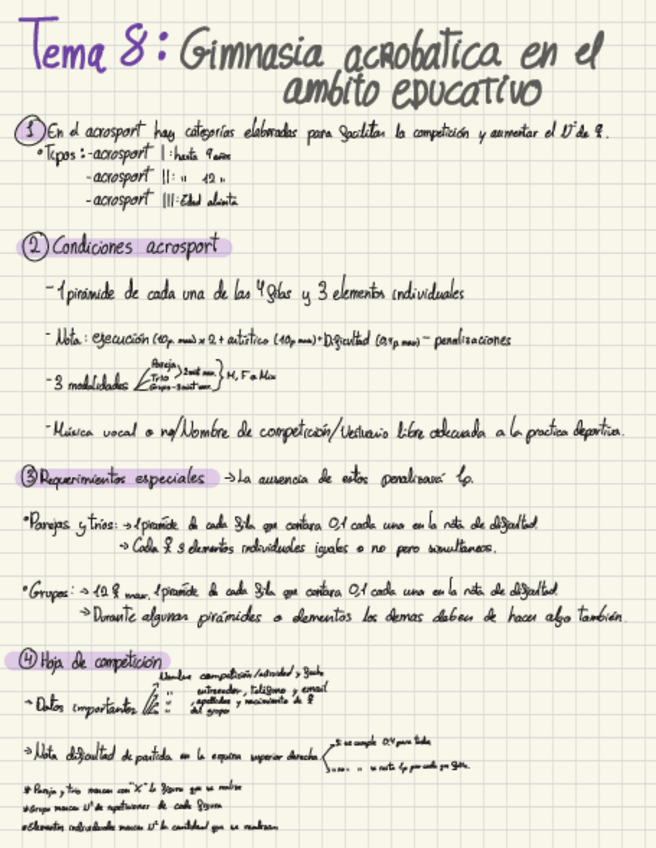 Tema 8: Gimnasia acrobatica en el
ambito EDUCATIVO
1 En el acrosport hay categorías elaboradas para facilitar la competición y aumentar el Nº de ♀.
• Tipos: - acrosport I: hasta 9 años
- acrosport II: " 12 "
- acrosport III: Edad abierta
2 Condiciones acrosport
- 1 pirámide de cada una de las 4 filas y 3 elementos individuales
- Nota: ejecución (10p. max) x 2 + artístico (10p max) + Dificultad (0,4p max) - penalizaciones
- 3 modalidades
Pareja
Trio
2 min max.
Grupo - 3 min max.
M, F o Mix
- Música vocal o no/Nombre de competición/Vestuario libre adecuada a la practica deportiva.
3 Requerimientos especiales → La ausencia de estos penalizará 1p.
• Parejas y tríos: → 1 piramide de cada fila que contara 0,1 cada una en la nota de dificultad.
→ Cada ♀ 3 elementos individuales iguales o no pero simultaneos.
• Grupos: → 12 ♀ max, 1 piramide de cada fila que contara 0,1 cada una en la nota de dificultad.
→ Durante algunas pirámides o elementos los demas deben de hacer algo también.
4 Hoja de competición
Nombre competición/actividad y fecha
" entrenador, teléfono y email
→ Datos importantes
" , apellidos y nacimiento de ♀
" del grupo
→ Nota dificultad de partida en la esquina superior derecha
Si se cumple 0,4 para todas
" no " se resta 1p por cada
* Pareja y trio marcan con "X" la figura que se realiza
* Grupo marcan Nº de repeticiones de cada figura
* Elementos individuales marcan Nº la cantidad que se realizan